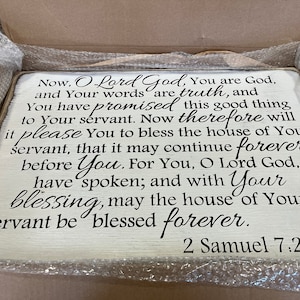 Now, O Lord God, You are God,
and Your words are truth, and
You have promised this good thing
to Your servant. Now therefore will
it please You to bless the house of You
servant, that it may continue forever
before You. For You, O Lord God,
have spoken; and with Your
blessing, may the house of You
ervant be blessed forever.
2 Samuel 7.2